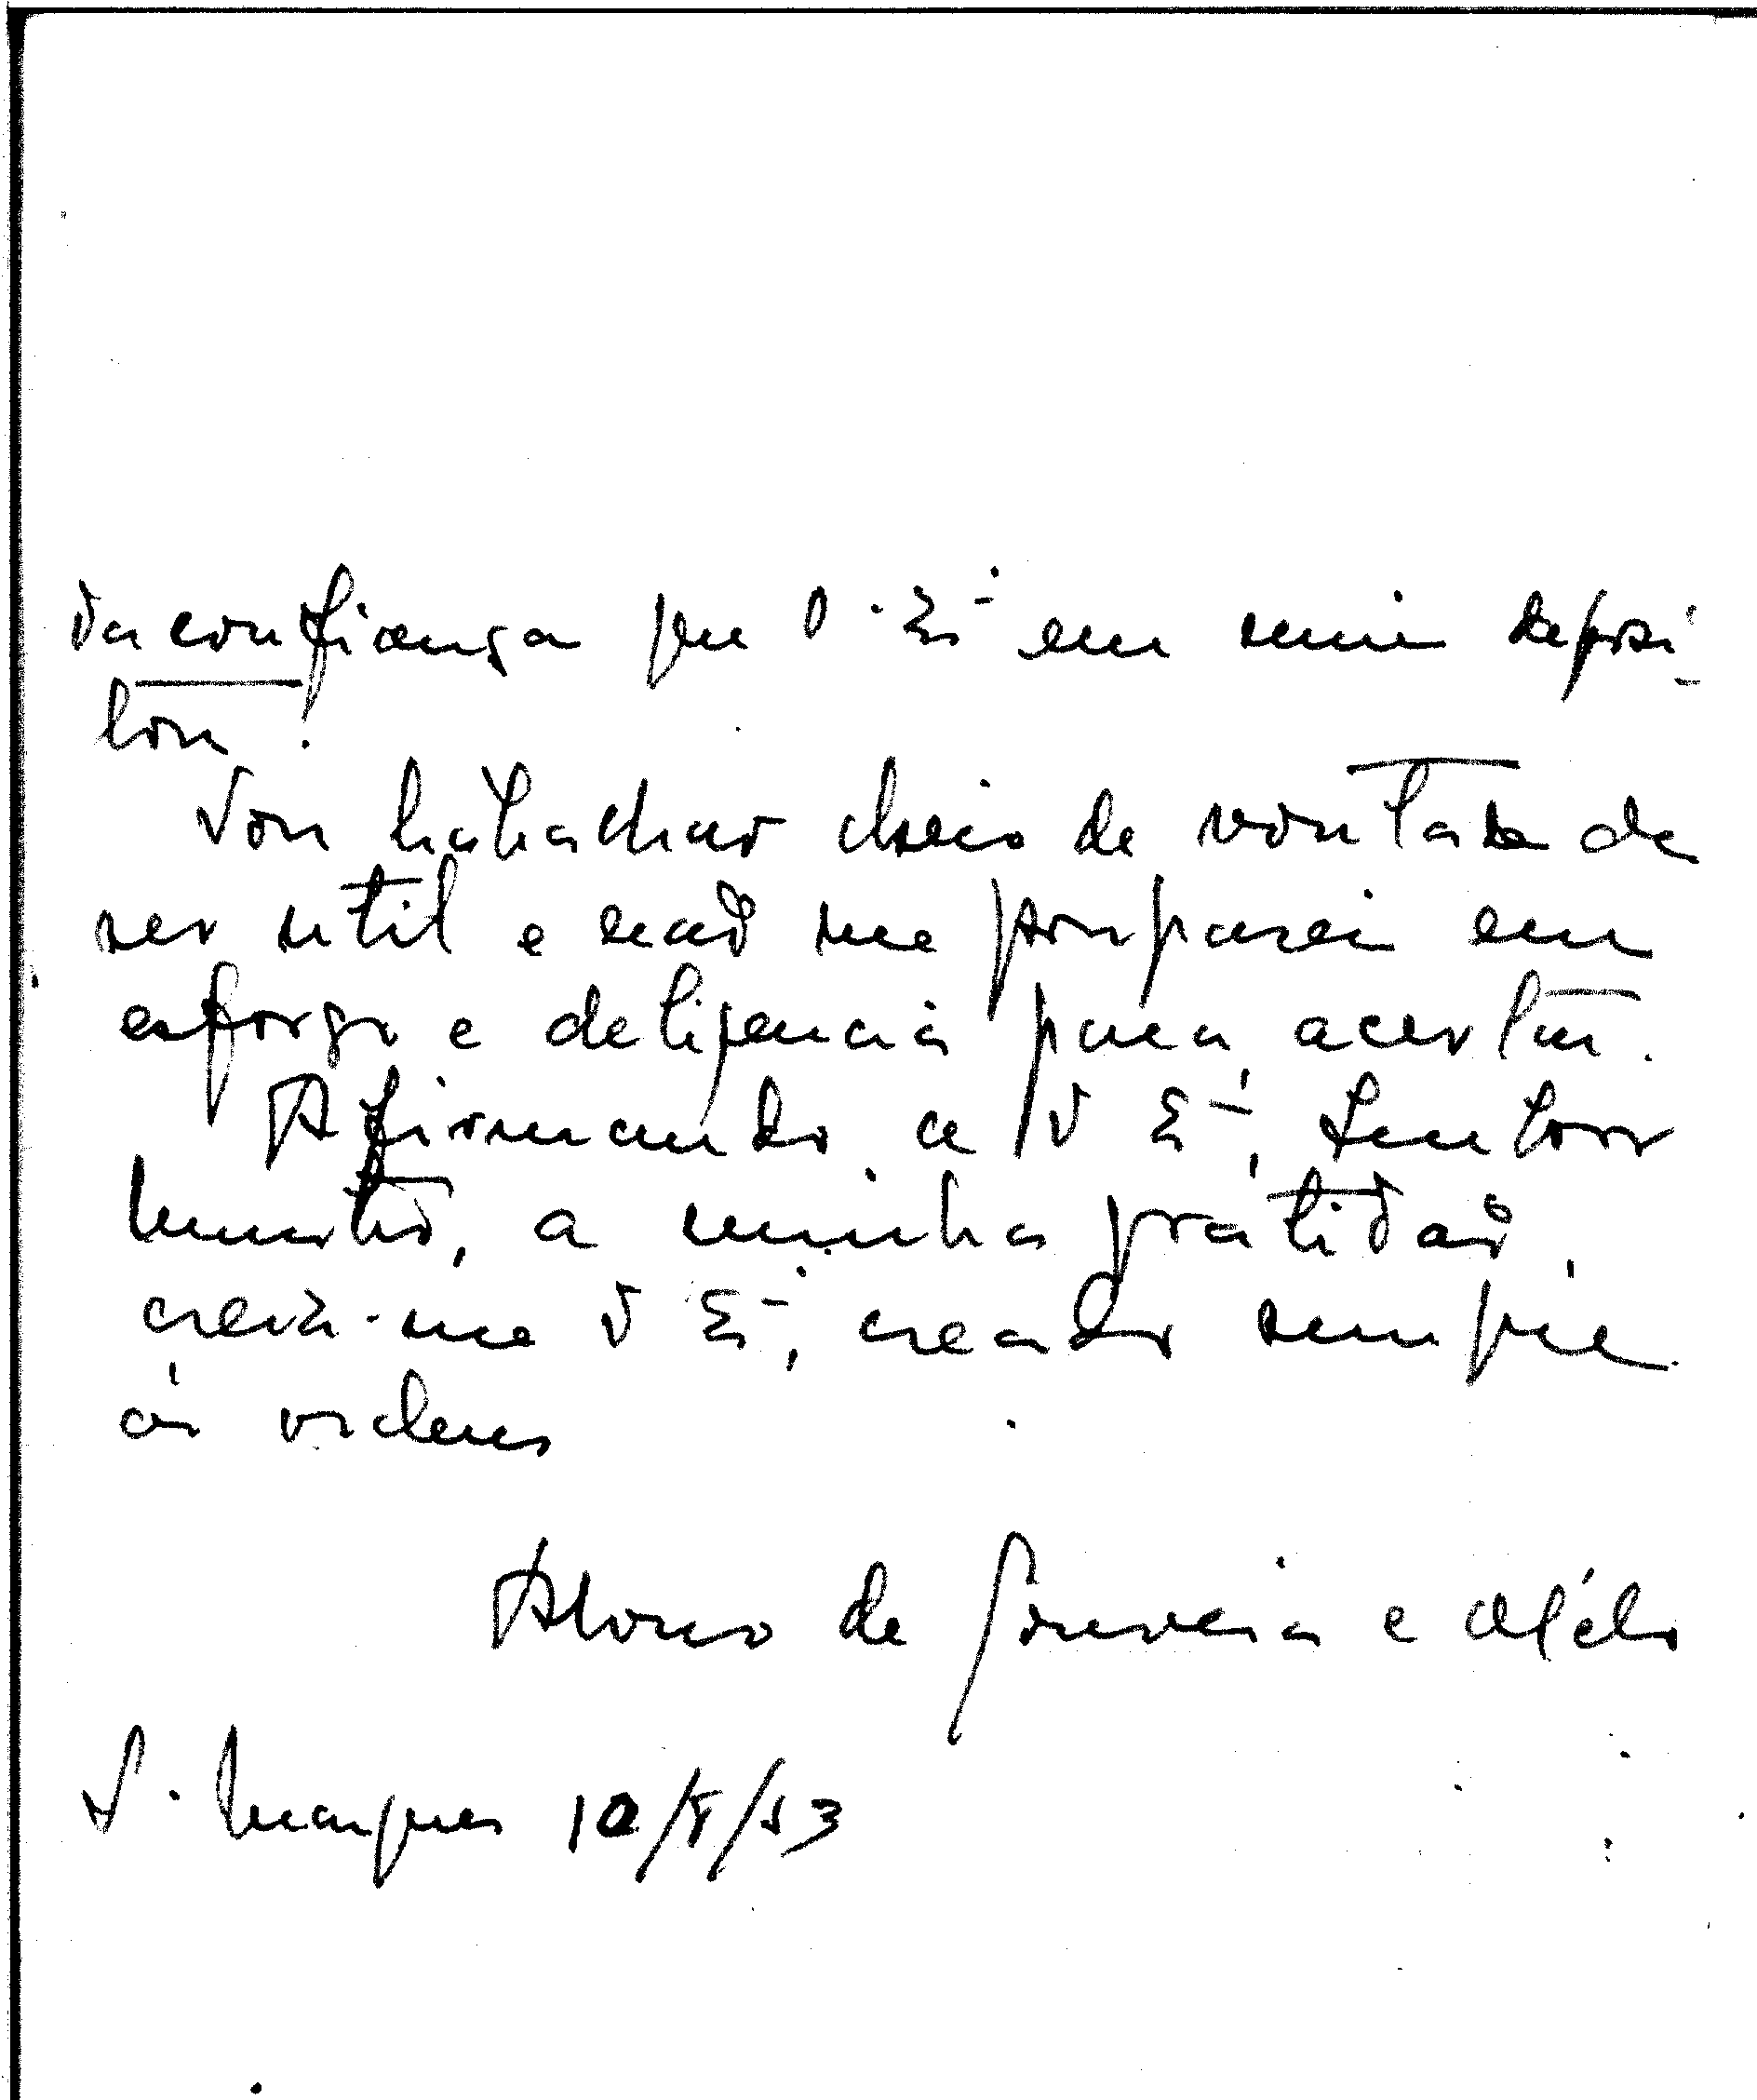 da confiança que V. Exª em mim deposi-
tou.
Vou trabalhar cheio de vontade de
ser util e não me pouparei em
esforço e deligencia para acertar.
Afirmando a V Exª, Senhor
Ministro, a minha gratidão,
creia-me V Exª, creado sempre
ás ordens
Afonso de Gouveia e Mélo
L. Marques 10/8/53